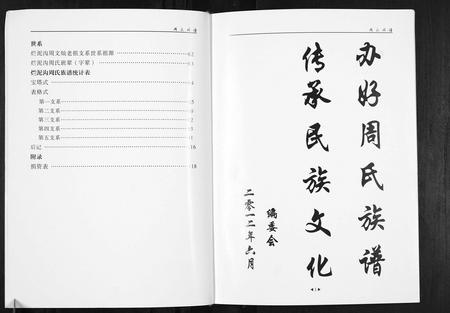 世系
烂泥沟周文灿老祖支系世系祖源
烂泥沟周氏班辈（字辈）
烂泥沟周氏族谱统计表
宝塔式
表格式
第一支系
第二支系
第三支系
第四支系
第五支系
后记 16
附录
捐资表 18
办好周氏族谱
传承民族文化
编委会
二零一二年六月